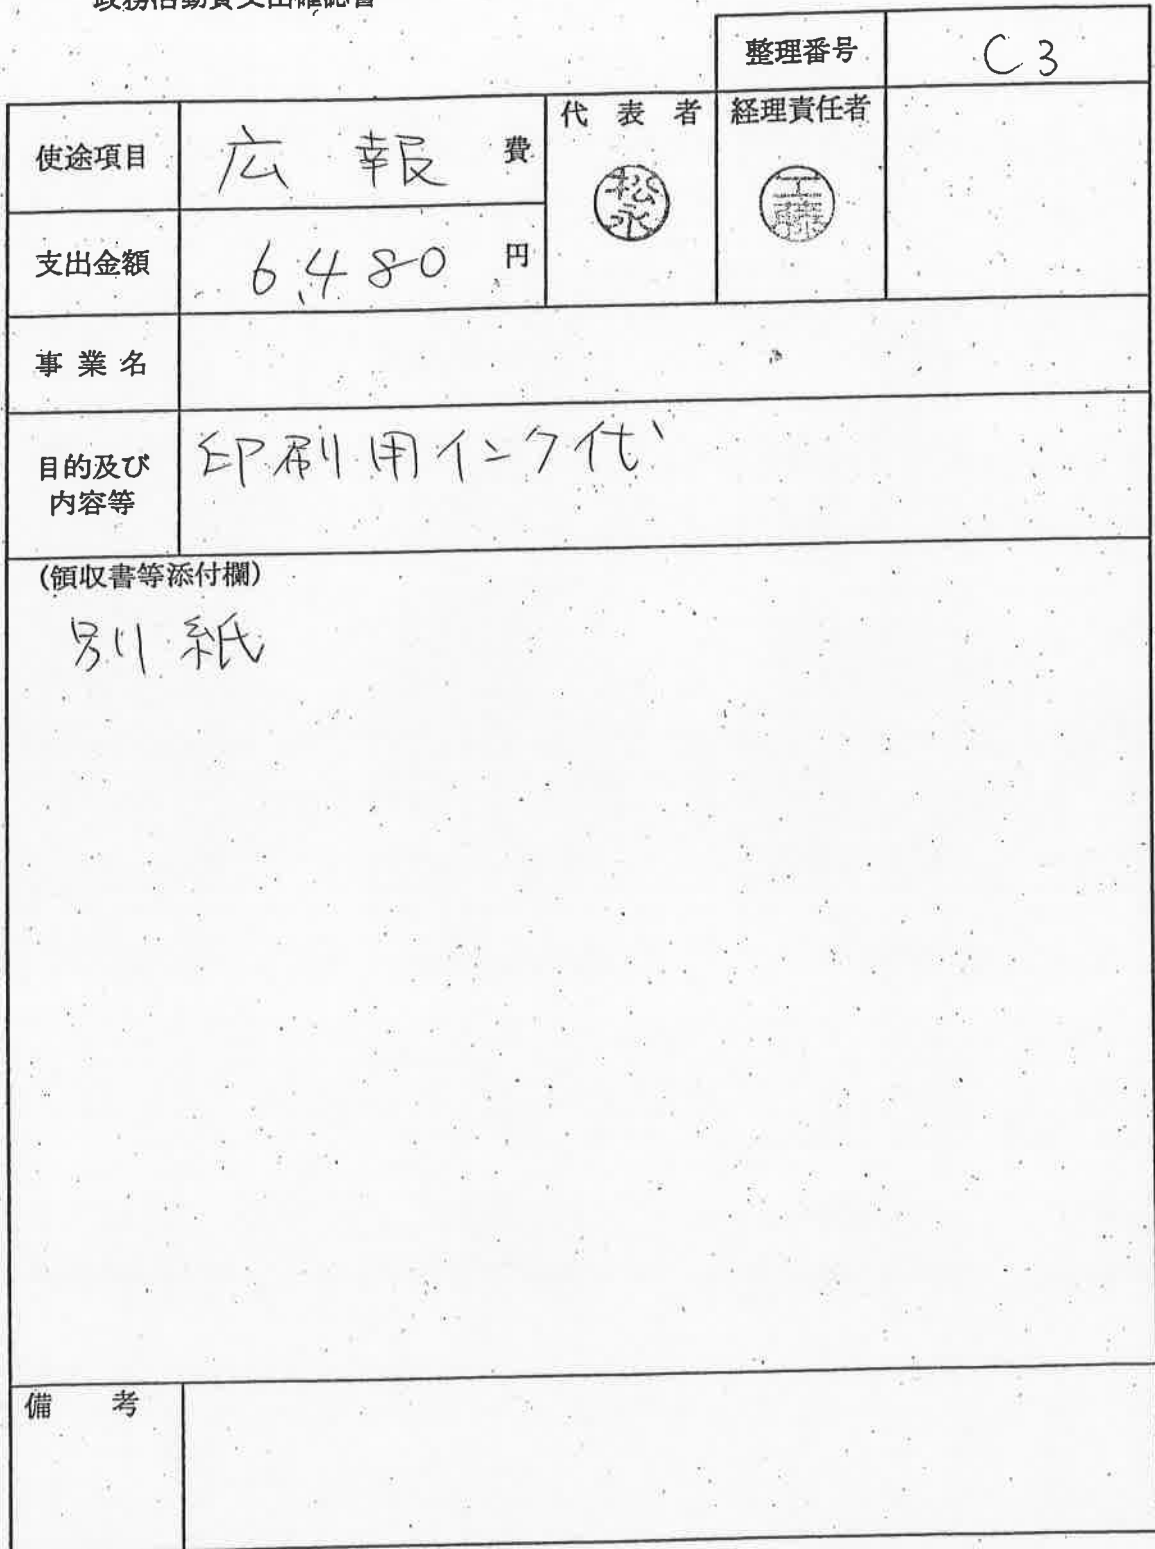 政務活動費支出確認書
整理番号 C3
使途項目 広報費
代表者 松永
経理責任者 工藤
支出金額 6,480円
事業名
目的及び内容等 印刷用インク代
(領収書等添付欄)
別紙
備考